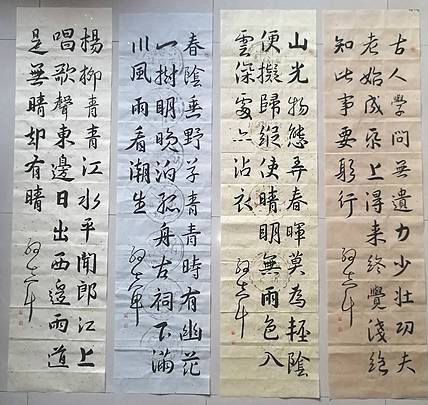 古人學問无遺力少壯功夫
老始成帋上得来終覺淺絕
知此事要躬行
山光物態弄春暉莫為輕陰
便擬歸縱使晴明無雨色入
雲深處亦沾衣
春陰垂野草青青時有幽花
一樹明晚泊孤舟古祠下滿
川風雨看潮生
楊柳青青江水平聞郎江上
唱歌聲東邊日出西邊雨道
是無晴却有晴